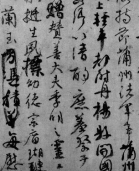 持節蒲州諸軍事蒲州
上輕車都尉丹楊縣開國
以清酌庶羞祭于
贈贊善大夫季明之靈
挺生夙標幼德宗廟瑚璉
蘭玉每慰